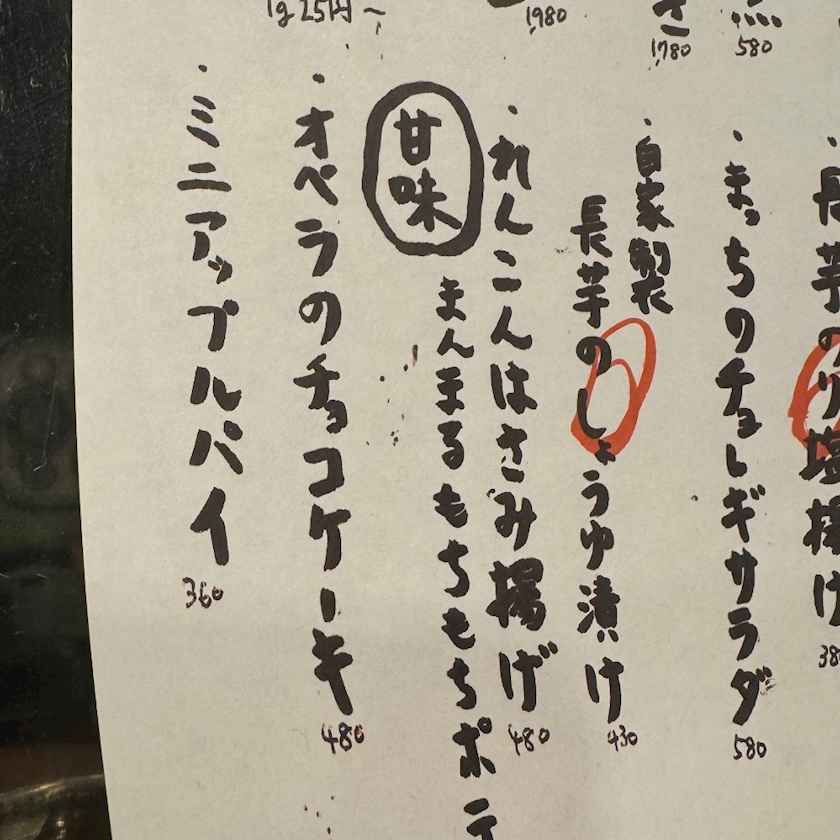 1780
580
1980
1g 25円～
長芋のり塩揚げ
38
・まっちのチョレギサラダ
580
・自家製
長芋のしょうゆ漬け
430
・れんこんはさみ揚げ
480
まんまるもちもちポテ
甘味
・オペラのチョコケーキ
480
・ミニアップルパイ
360